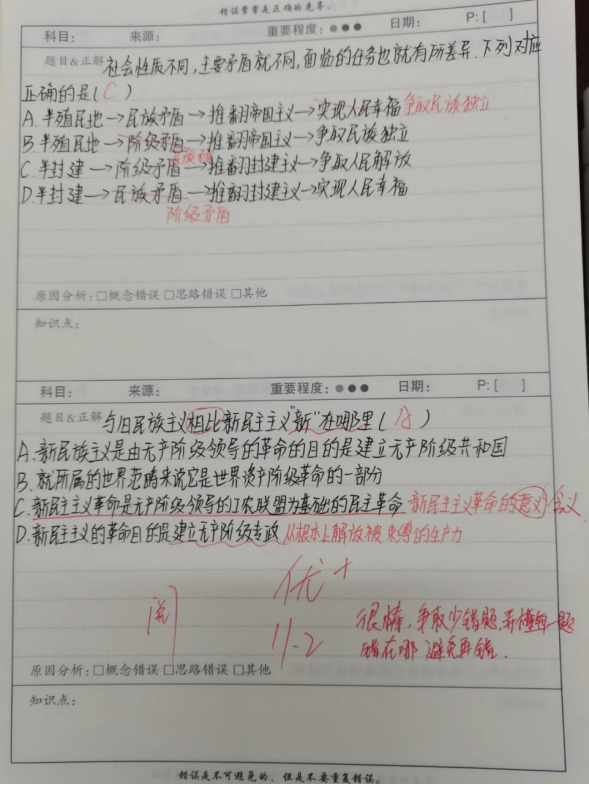 错误常常是正确的先导。
科目: 来源: 重要程度:●●● 日期: P:[ ]
题目&正解 社会性质不同,主要矛盾就不同,面临的任务也就有所差异.下列对应
正确的是( C )
A.半殖民地→民族矛盾→推翻帝国主义→实现人民幸福 争取民族独立
B.半殖民地→阶级矛盾→推翻帝国主义→争取民族独立
C.半封建→阶级矛盾→推翻封建主义→争取人民解放
D.半封建→民族矛盾→推翻封建主义→实现人民幸福
阶级矛盾
原因分析:□概念错误 □思路错误 □其他
知识点:
科目: 来源: 重要程度:●●● 日期: P:[ ]
题目&正解 与旧民族主义相比新民主主义"新"在哪里( A )
A.新民族主义是由无产阶级领导的革命的目的是建立无产阶级共和国
B.就所属的世界范畴来说它是世界资产阶级革命的一部分
C.新民主主义革命是无产阶级领导的工农联盟为基础的民主革命 新民主主义革命的意义 含义
D.新民主主义的革命目的是建立无产阶级专政 从根本上解放被束缚的生产力
优+
阅
11.2
很棒,争取少错题,弄懂每一题
错在哪 避免再错.
原因分析:□概念错误 □思路错误 □其他
知识点:
错误是不可避免的,但是不要重复错误。